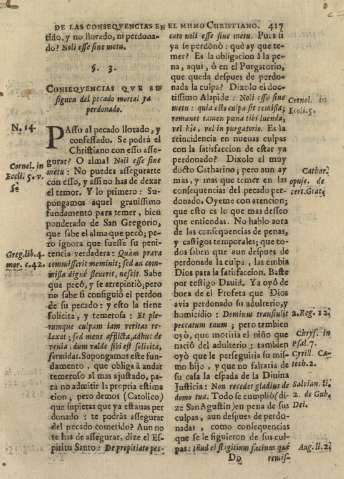 DE LAS CONSEQVENCIAS EN EL MISMO CHRISTIANO. 417
tido, y no llorado, ni perdona-
do? Noli esse sine metu.
§. 3.
CONSEQVENCIAS QVE SE
siguen del pecado mortal ya
perdonado.
N. 14.
PAsso al pecado llorado, y
confessado. Se podrà el
Christiano con esso asse-
gurar? O alma! Noli esse sine
metu: No puedes assegurarte
con esso, y assi no has de dexar
el temor. Y lo primero: Su-
pongamos aquel gravissimo
fundamento para temer, bien
ponderado de San Gregorio,
que sabe el alma que pecò; pe-
ro ignora que fuesse su peni-
tencia verdadera: Quàm prava
commisserit meminit; sed an com-
missa dignè fleverit, nescit. Sabe
que pecò, y se arrepintiò, pero
no sabe si consiguiò el perdon
de su pecado: y esto la tiene
solicita, y temerosa: Et ple-
rumque culpam iam veritas re-
laxat, sed mens afflicta, adhuc de
venia, dum valde sibi est sollicita,
formidat. Supongamos este fun-
damento, que obliga à andar
temeroso al mas ajustado, pa-
ra no admitir la propria estima
cion, pero demos (Catolico)
que supieras que ya estauas per
donado: te podràs assegurar
del pecado cometido? Aun no
te has de assegurar, dize el Es-
piritu Santo: De propitiato pec-
Cornel. in
Eccli. 5. v.
5.
Greg. lib. 4.
mor. c. 42.
cato noli esse sine metu. Pues si
ya se perdonò: què ay que te-
mer? Es la obligacion à la pe-
na, aqui, ò en el Purgatorio,
que queda despues de perdo-
nada la culpa? Dixolo el doc-
tissimo Alapide: Noli esse sine
metu: quia etsi culpa sit remissa;
remanet tamen pœna tibi luenda,
vel hîc, vel in purgatorio. Es la
reincidencia en nueuas culpas
con la satisfaccion de estar ya
perdonado? Dixolo el muy
docto Catharino; pero aun ay
mas, y mas que temer en las
consequencias del pecado per-
donado. Oyeme con atencion;
que esto es lo que mas desseo
que entiendas. No hablo aora
de las consequencias de penas,
y castigos temporales; que to-
dos saben que aun despues de
perdonada la culpa, las embia
Dios para la satisfaccion. Baste
por testigo Dauid. Ya oyò de
boca de el Profeta que Dios
avia perdonado su adulterio, y
homicidio: Dominus transtulit
peccatum tuum; pero tambien
oyò, que moriria el niño que
naciò del adulterio: tambien
oyò que le perseguiria su mis-
mo hijo, y que no faltaria de
su casa la espada de la Diuina
Justicia: Non recedet gladius de
domo tua. Todo se cumpliò; di-
ze San Agustin en pena de sus
culpas, aun despues de perdo-
nadas, como consequencias
que se le siguieron de sus cul-
pas: illud est
Cornel. in
Eccli. 5.
Cathar.
opusc. de
cert. Grat.
2. Reg. 12.
Chrys. in
Psal. 7.
Cyrill. Ca
tech. 2.
Salvian. li.
2. de Gub.
Dei.
Aug. li. 2.
Dd remis-